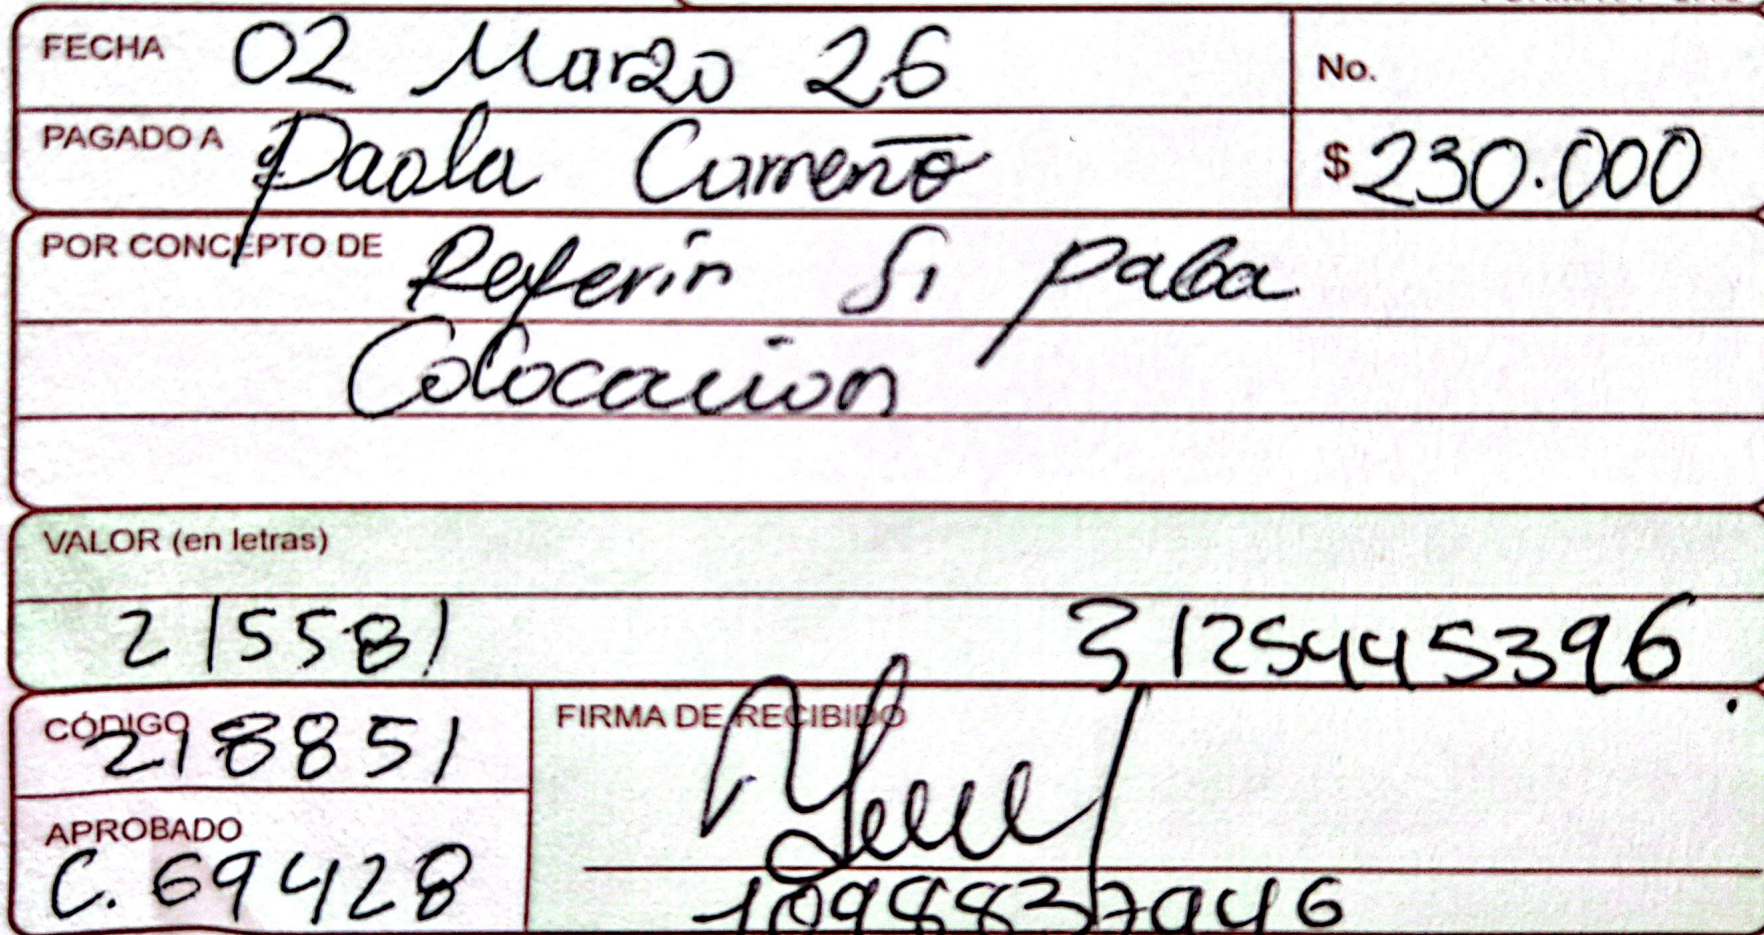 FECHA 02 Marzo 26 No.
PAGADO A Paola Carreño $ 230.000
POR CONCEPTO DE Referir Si paba
Colocacion
VALOR (en letras)
215581 3125445396
CÓDIGO 218851 FIRMA DE RECIBIDO
APROBADO
C. 69428 1098837946